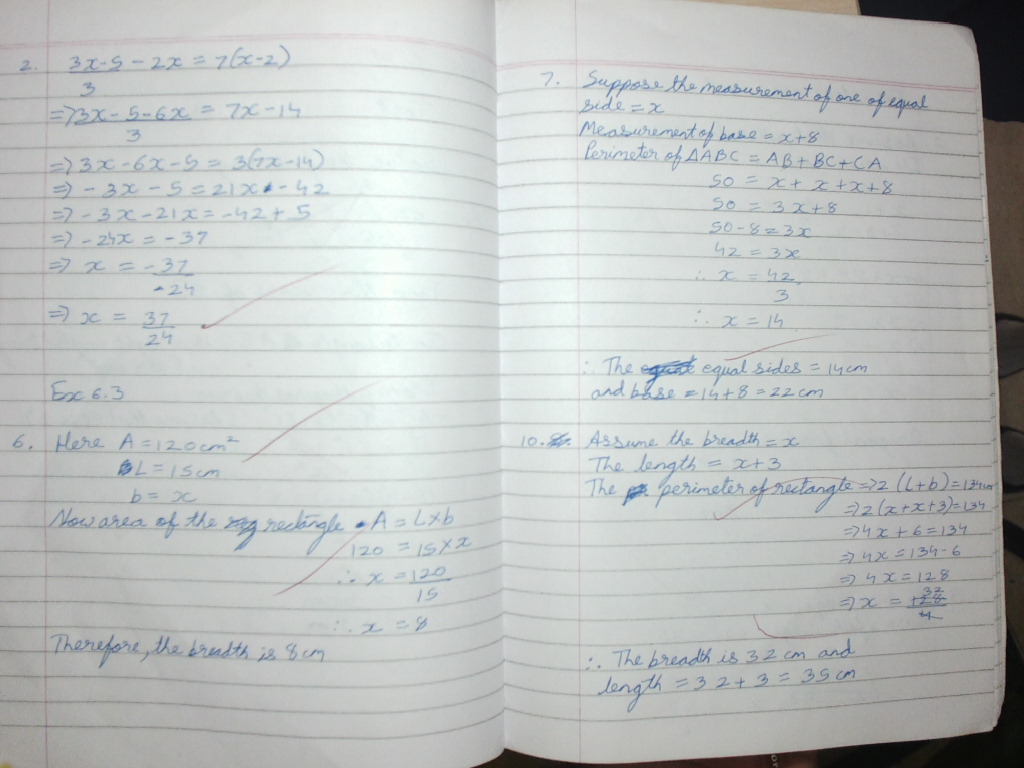 2. 3x-5 - 2x = 7(x-2)
3
=> 3x-5-6x = 7x-14
3
=> 3x-6x-5 = 3(7x-14)
=> -3x-5 = 21x-42
=> -3x-21x = -42+5
=> -24x = -37
=> x = -37
-24
=> x = 37
24
Ex 6.3
6. Here A = 120cm²
L = 15cm
b = x
Now area of the rectangle A = L×b
120 = 15×x
∴ x = 120
15
∴ x = 8
Therefore, the breadth is 8cm
7. Suppose the measurement of one of equal
side = x
Measurement of base = x+8
Perimeter of ΔABC = AB+BC+CA
50 = x+x+x+8
50 = 3x+8
50-8 = 3x
42 = 3x
∴ x = 42
3
∴ x = 14
∴ The equal sides = 14cm
and base = 14+8 = 22cm
10. Assume the breadth = x
The length = x+3
The perimeter of rectangle => 2(L+b) = 134cm
=> 2(x+x+3) = 134
=> 4x+6 = 134
=> 4x = 134-6
=> 4x = 128
=> x = 32
128
4
∴ The breadth is 32cm and
length = 32+3 = 35cm